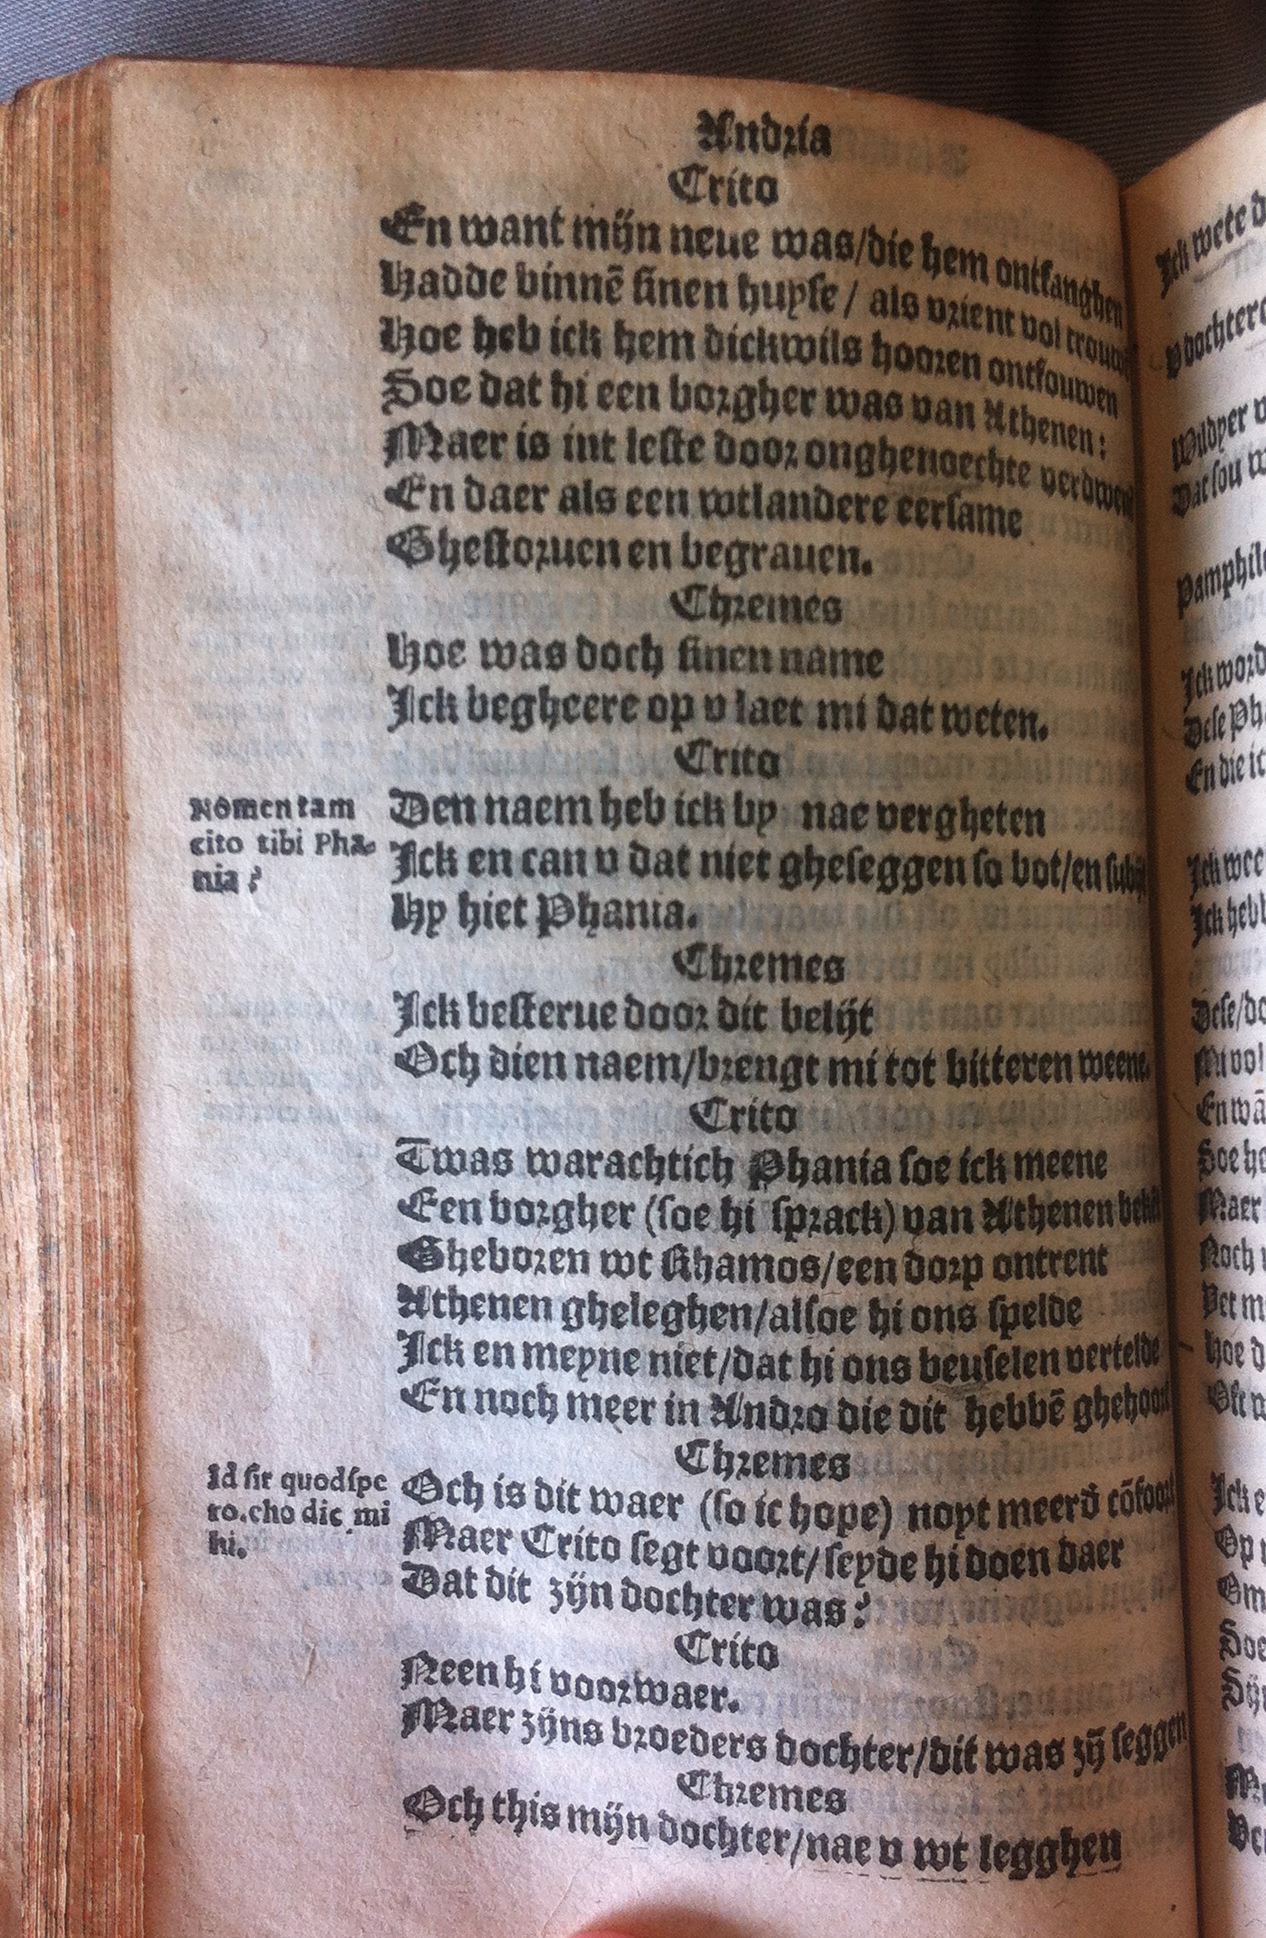 Andria
Crito
En want mijn neue was/die hem ontfanghen
Hadde binnē sinen huyse/ als vrient vol
Hoe heb ick hem dickwils hooren ontfouwen
Soe dat hi een borgher was van Athenen:
Maer is int leste door onghenoechte
En daer als een wtlandere eersame
Ghestoruen en begrauen.
Chremes
Hoe was doch sinen name
Ick begheere op v laet mi dat weten.
Crito
Nomen tam
cito tibi Phæ-
nia?
Den naem heb ick by nae vergheten
Ick en can v dat niet gheseggen so bot/en
Hy hiet Phania.
Chremes
Ick besterue door dit belijt
Och dien naem/brengt mi tot bitteren weene.
Crito
Twas warachtich Phania soe ick meene
Een borgher (soe hi sprack) van Athenen
Gheboren wt Rhamos/een dorp ontrent
Athenen gheleghen/alsoe hi ons spelde
Ick en meyne niet/dat hi ons beuselen vertelde
En noch meer in Andro die dit hebbē ghehoort
Chremes
Id sit quod spe
ro.cho dic mi
hi.
Och is dit waer (so ic hope) noyt meerd̄ cōfoort
Maer Crito segt voort/seyde hi doen daer
Dat dit zijn dochter was?
Crito
Neen hi voorwaer.
Maer zijns broeders dochter/dit was zȳ seggen
Chremes
Och this mijn dochter/nae v wt legghen
Ick wete
v dochter
Wildyer
Dat sou
Ick word
Dese
En die
Ick
Ick
Dese/
Mi vol
En wā
Soe
Maer
Noch
Hoe
Oft
Ick
Op
Om
Soe